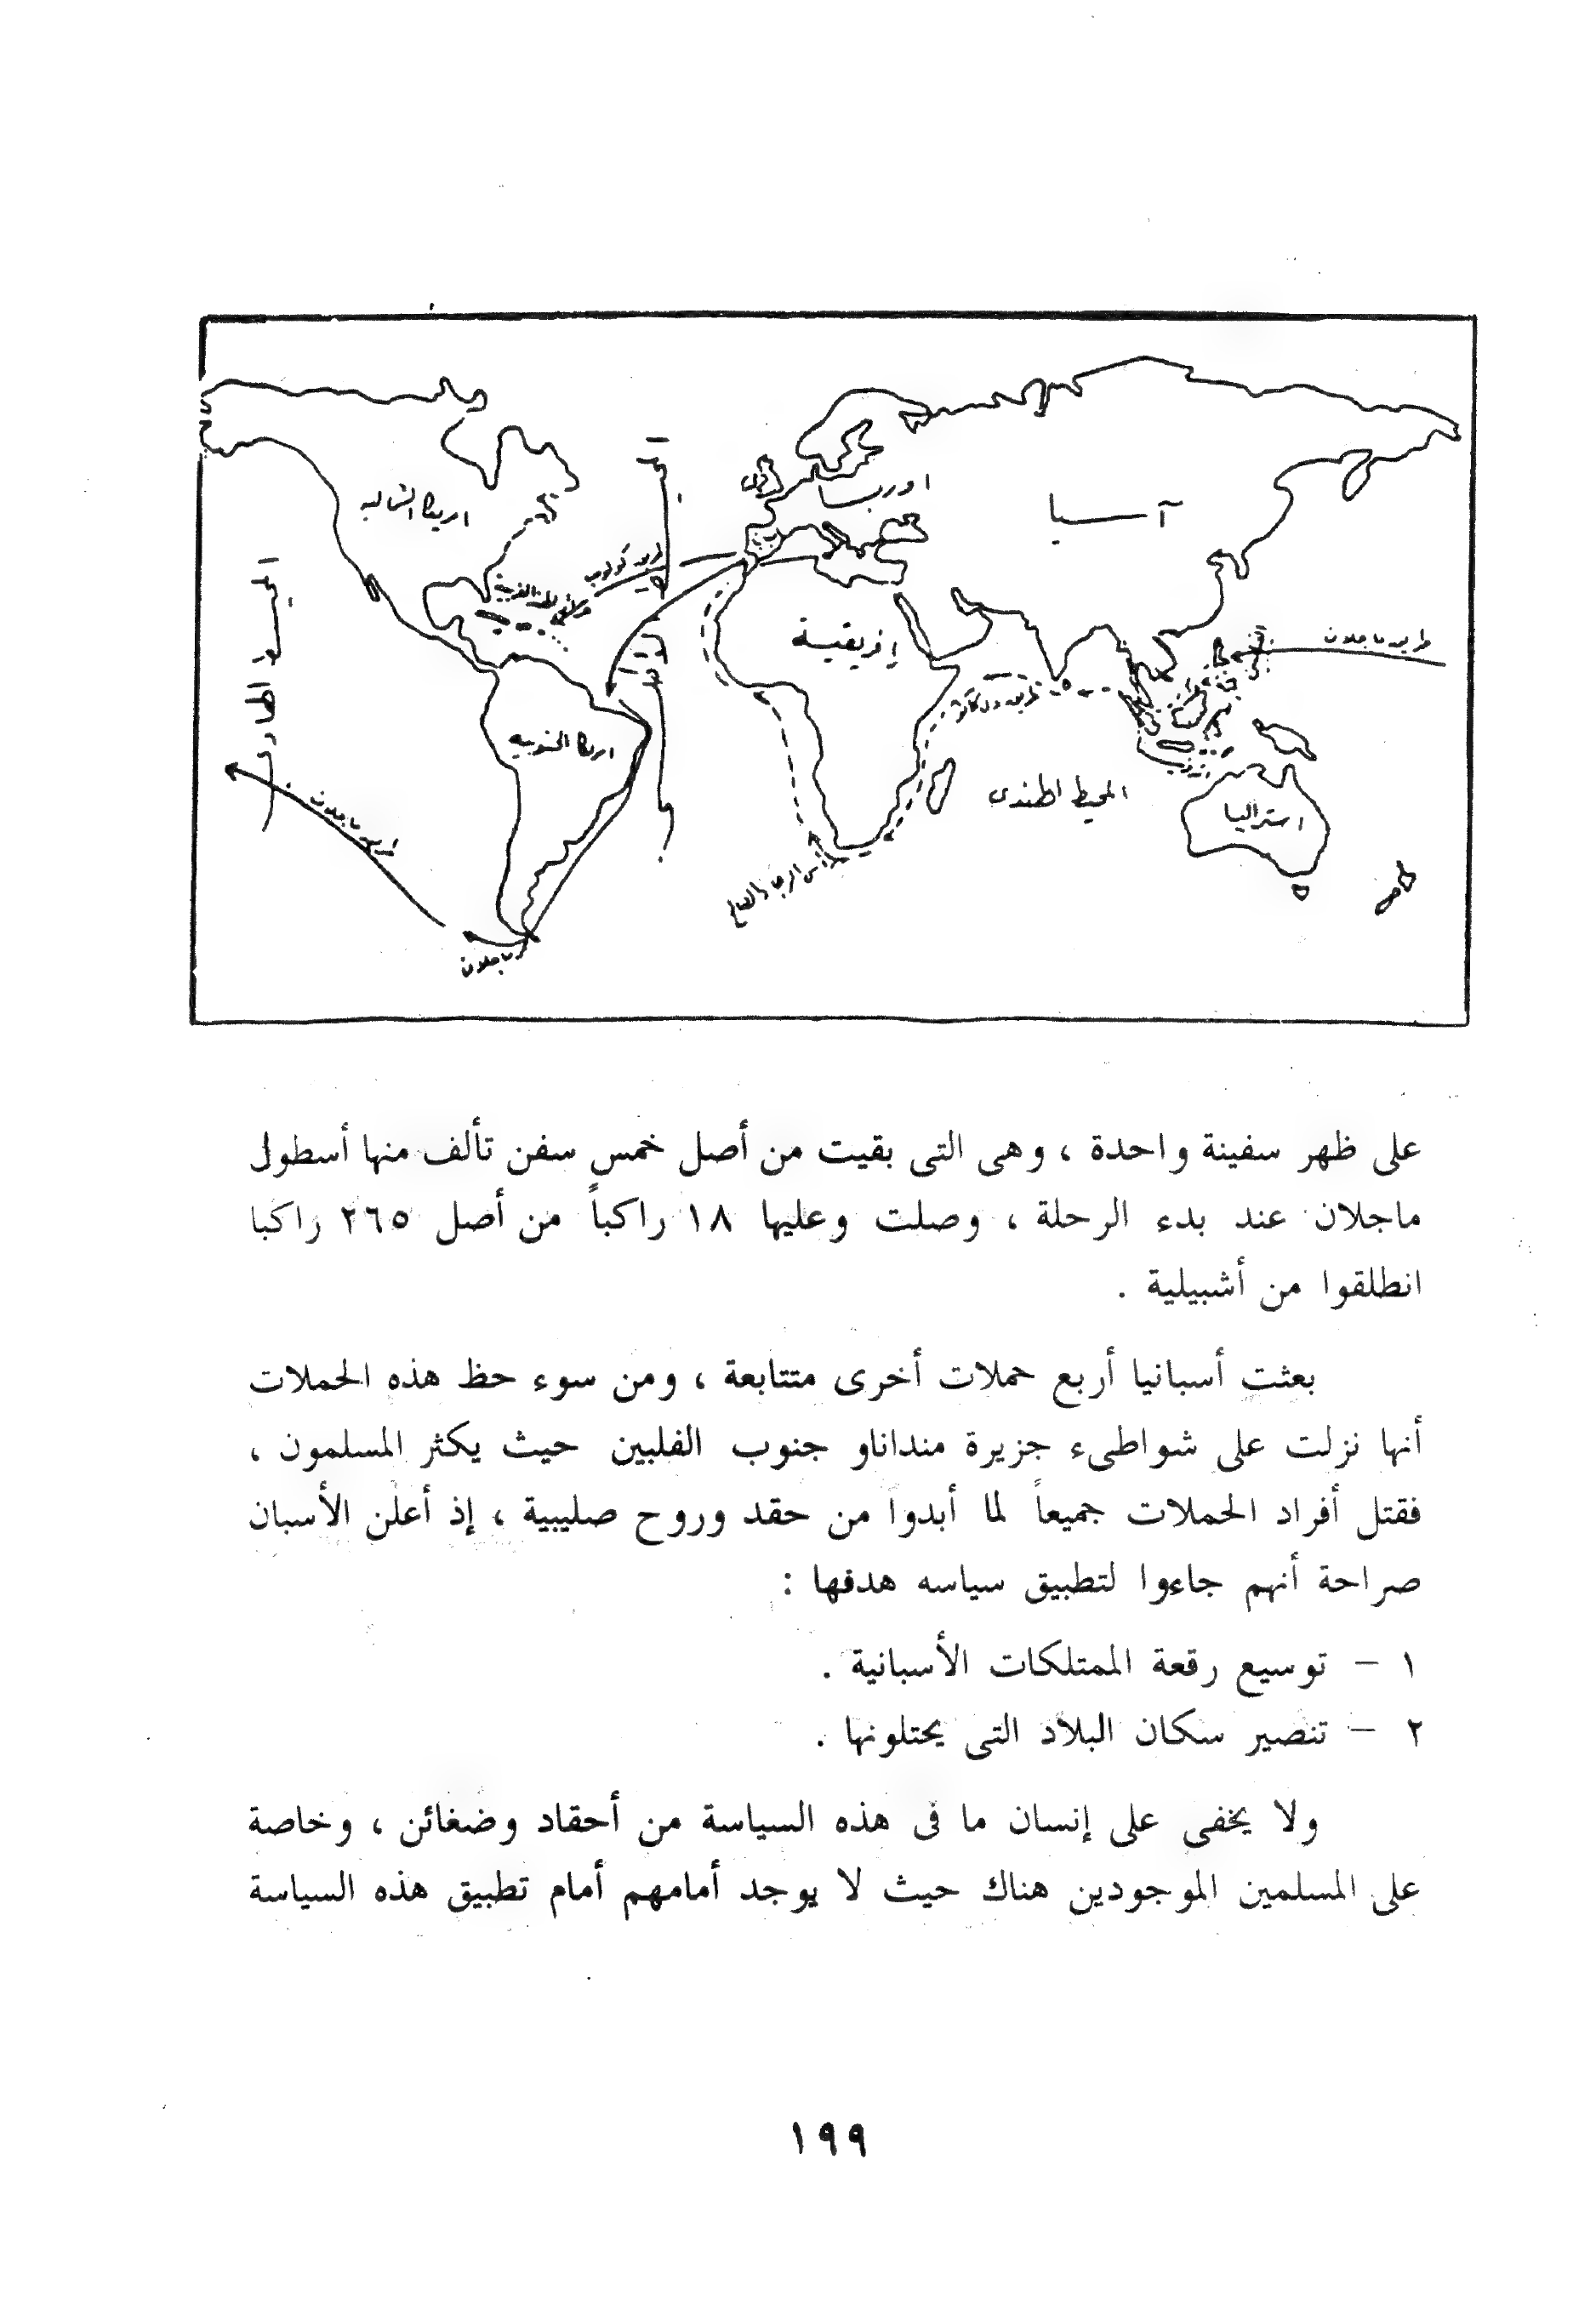 امريكا الشمالية
اوربا
آسيا
طريق كولومبس
جزر الهند الغربية
إفريقية
طريق ماجلان
المحيط الهادي
امريكا الجنوبية
المحيط الهندى
استراليا
طريق ماجلان
رأس الرجاء الصالح
ماجلان
على ظهر سفينة واحدة ، وهى التى بقيت من أصل خمس سفن تألف منها أسطول
ماجلان عند بدء الرحلة ، وصلت وعليها ١٨ راكباً من أصل ٢٦٥ راكبا
انطلقوا من أشبيلية .
بعثت أسبانيا أربع حملات أخرى متتابعة ، ومن سوء حظ هذه الحملات
أنها نزلت على شواطىء جزيرة منداناو جنوب الفلبين حيث يكثر المسلمون ،
فقتل أفراد الحملات جميعاً لما أبدوا من حقد وروح صليبية ، إذ أعلن الأسبان
صراحة أنهم جاءوا لتطبيق سياسه هدفها :
١ – توسيع رقعة الممتلكات الأسبانية .
٢ – تنصير سكان البلاد التى يحتلونها .
ولا يخفى على إنسان ما فى هذه السياسة من أحقاد وضغائن ، وخاصة
على المسلمين الموجودين هناك حيث لا يوجد أمامهم أمام تطبيق هذه السياسة
١٩٩